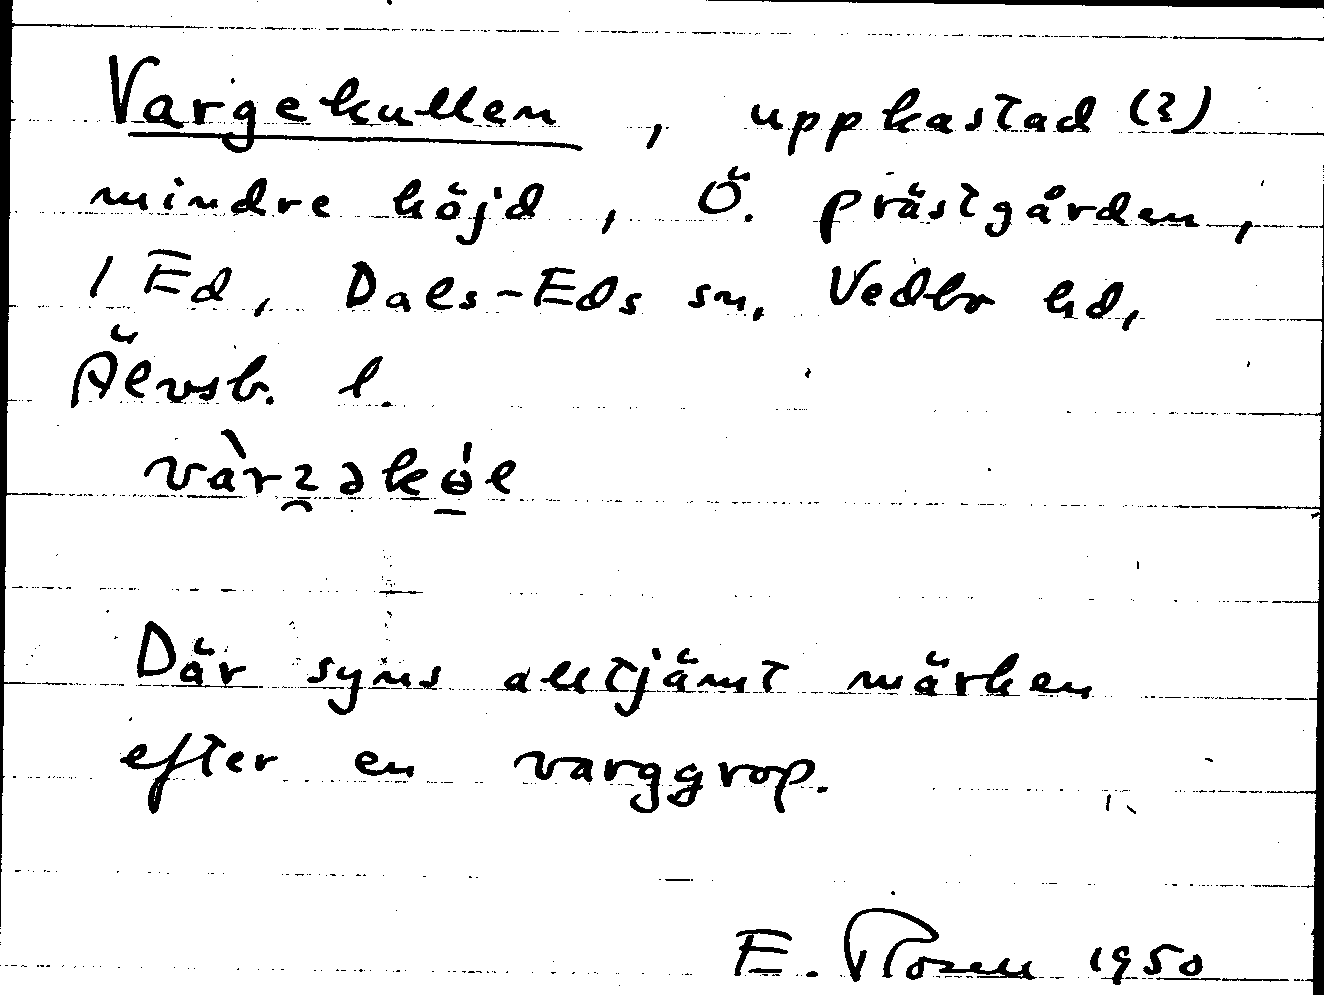 Vargekullen, uppkastad (?)
mindre höjd, Ö. prästgården,
1 Ed, Dals-Eds sn, Vedbo hd,
Älvsb. l.
Där syns alltjämt märken
efter en varggrop.
E. Rosell 1950